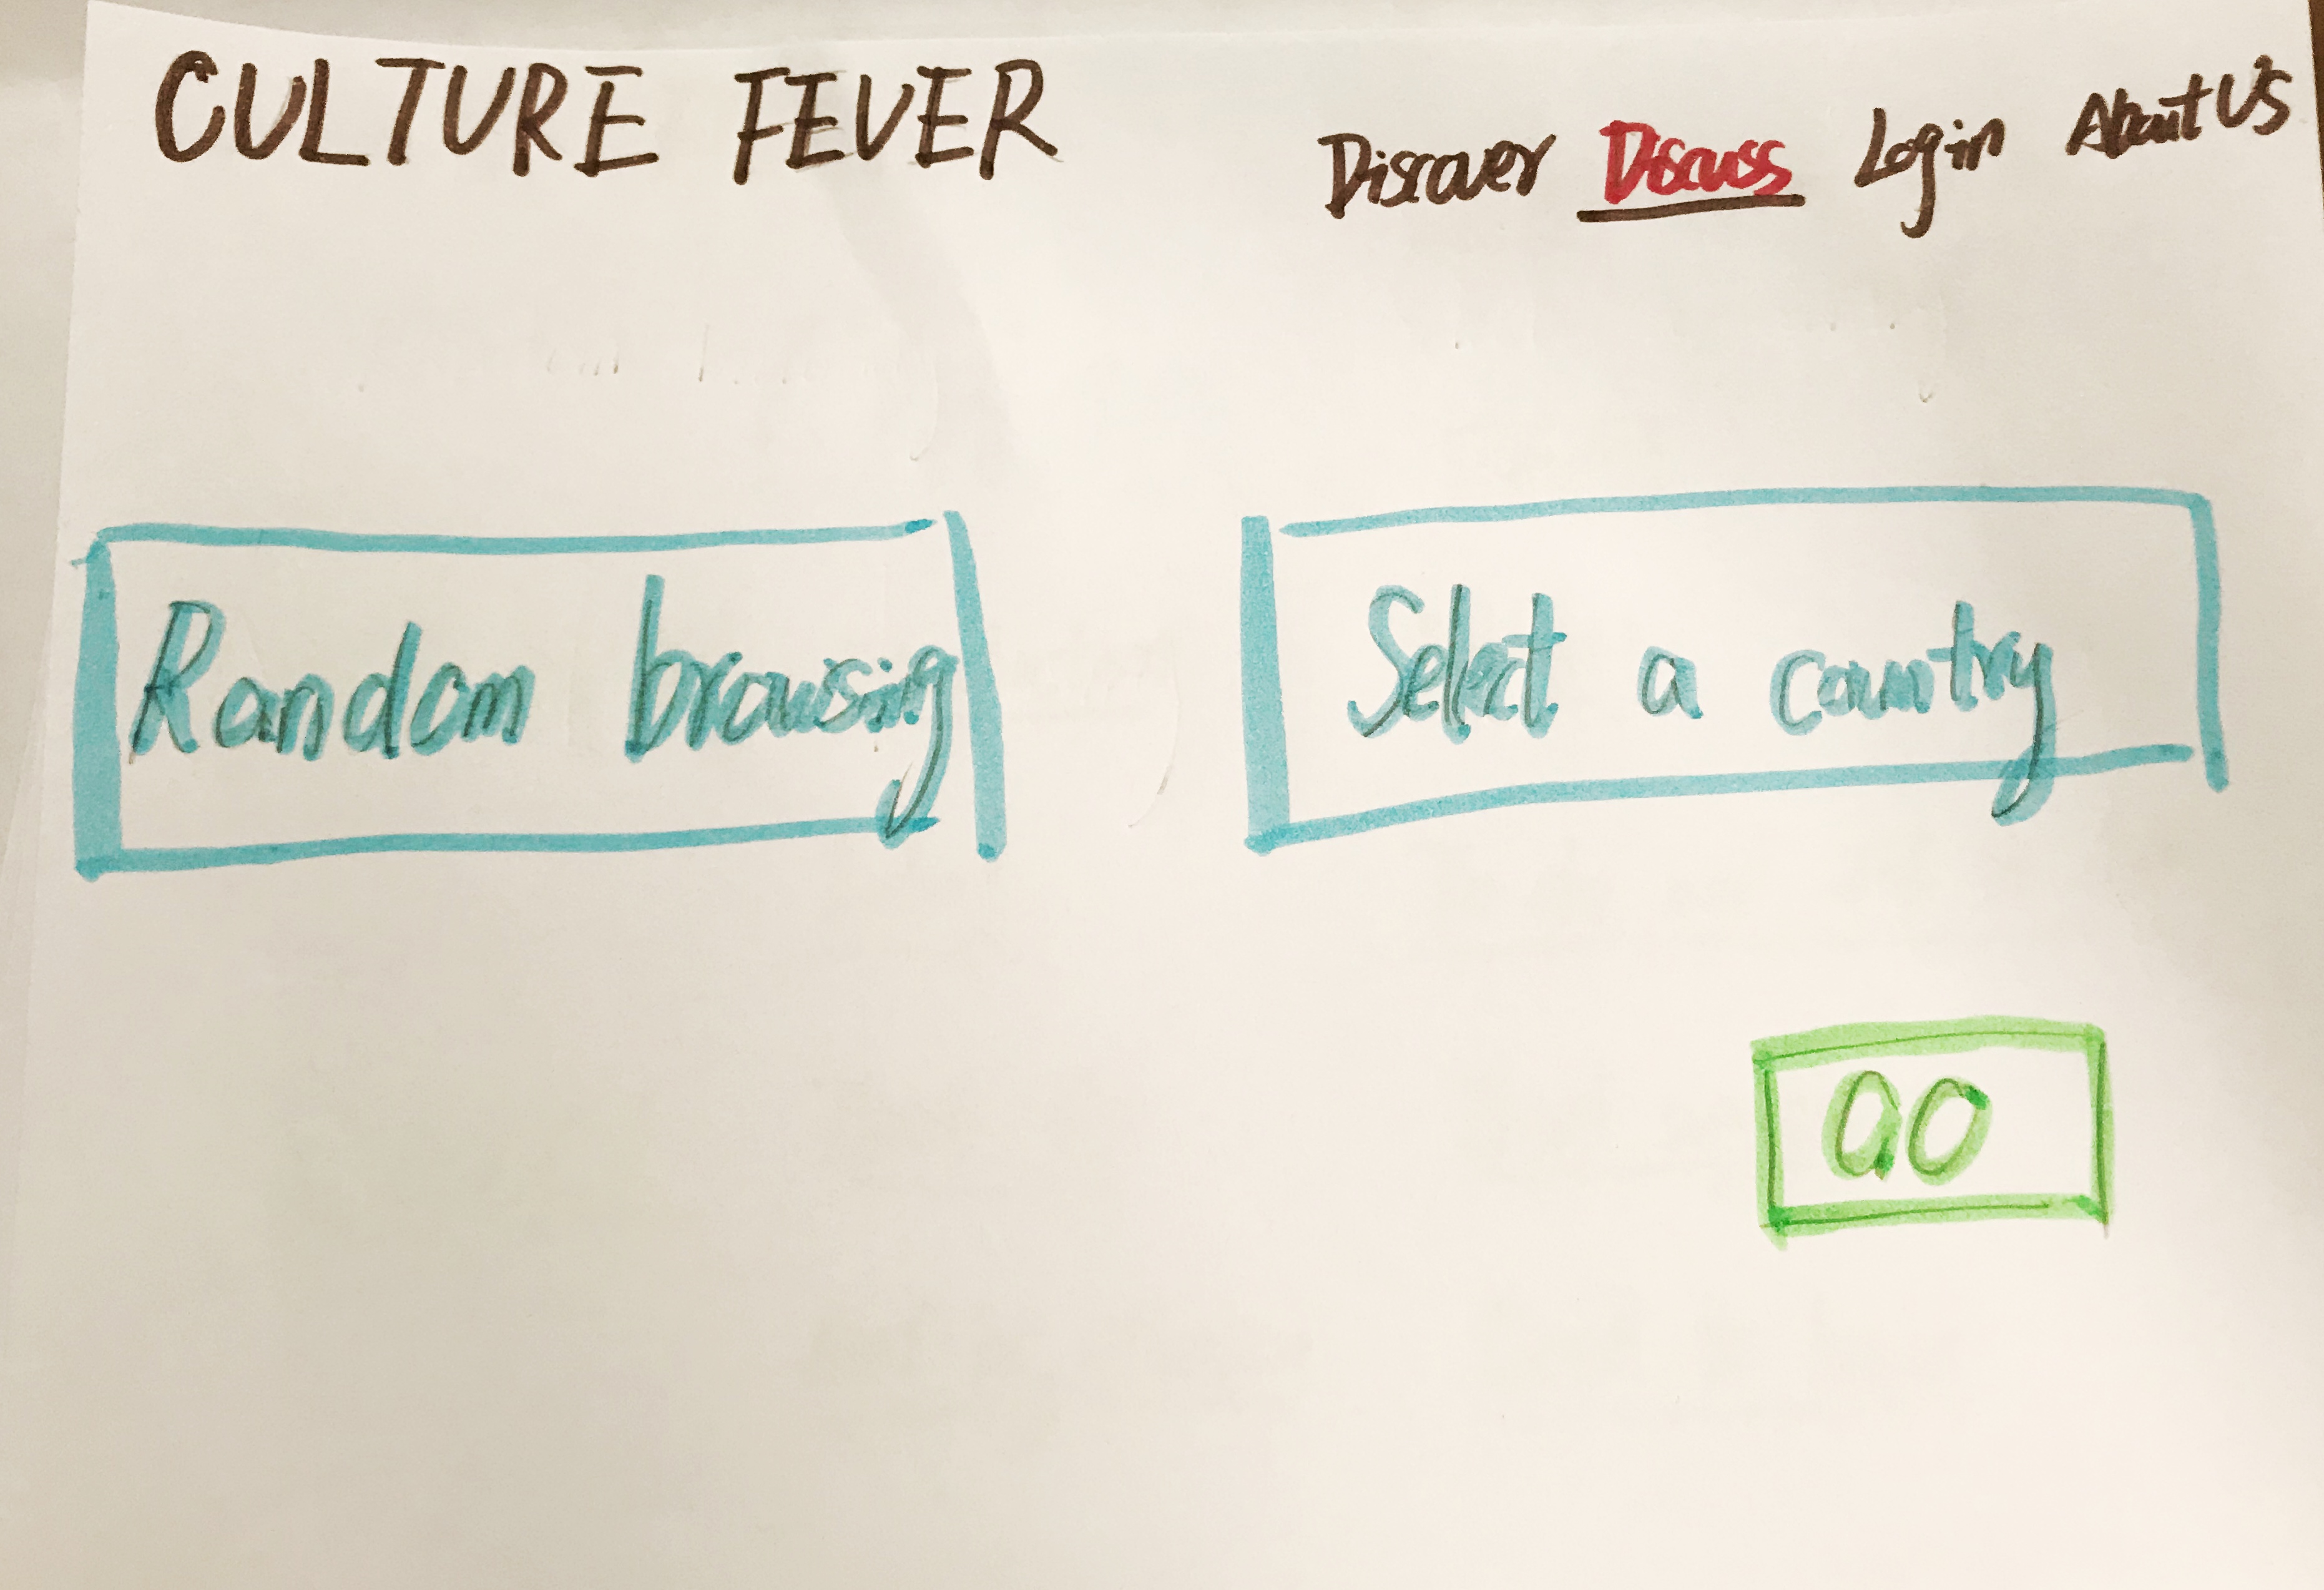 CULTURE FEVER
Discover Discuss Login About US
Random browsing
Select a country
GO